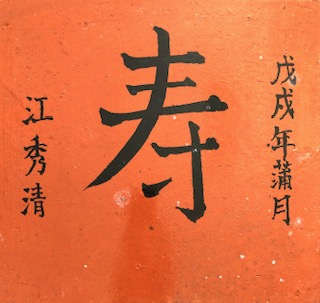 戊戌年蒲月
寿
江秀清